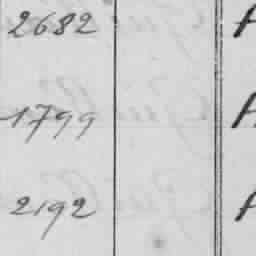 2682
1799
2192